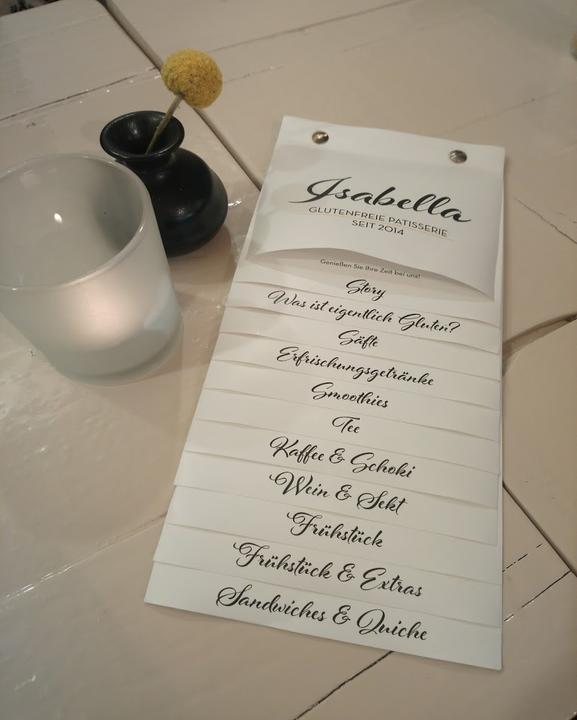 Isabella
GLUTENFREIE PATISSERIE
SEIT 2014
Genießen Sie Ihre Zeit bei uns!
Story
Was ist eigentlich Gluten?
Säfte
Erfrischungsgetränke
Smoothies
Tee
Kaffee & Schoki
Wein & Sekt
Frühstück
Frühstück & Extras
Sandwiches & Quiche